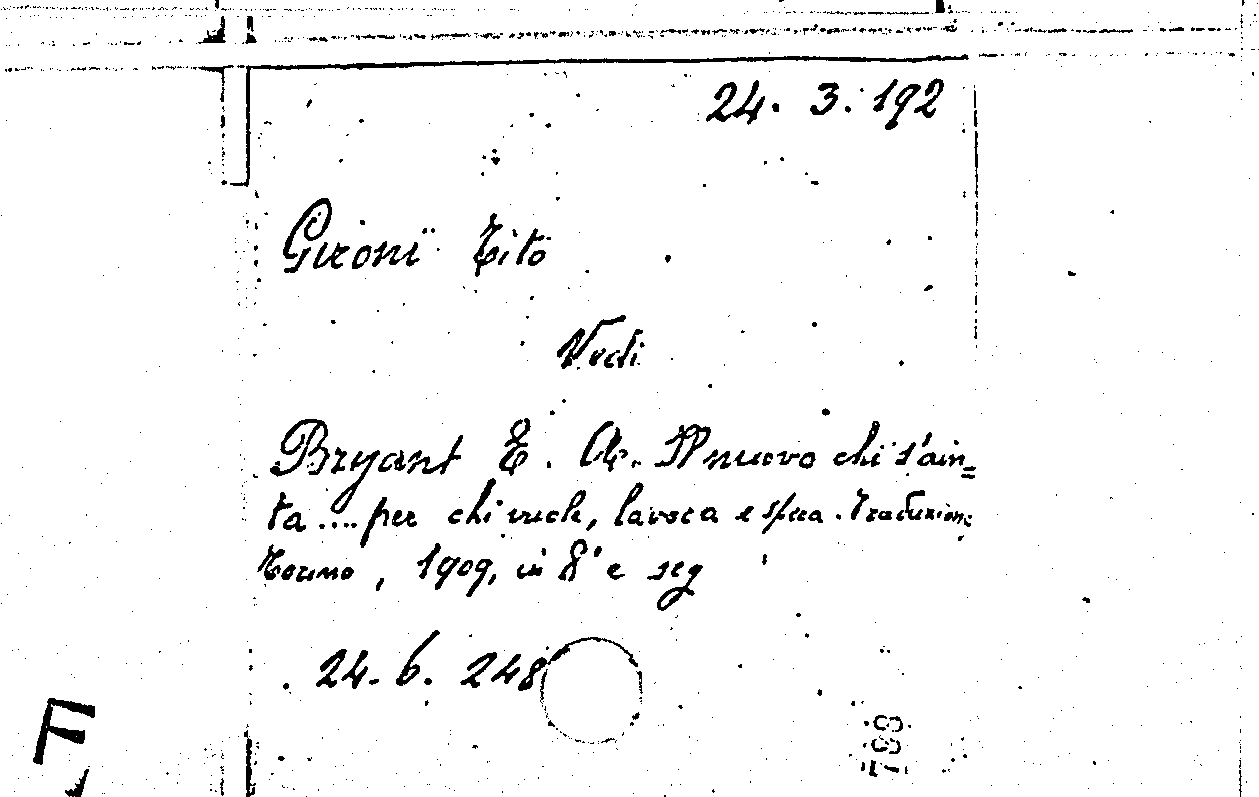 24. 3. 192
Gironi Tito
Vedi
Bryant E. A. Il nuovo chi s'ain=
ta .... per chi vuole, lavora e spera. Traduzione
Torino, 1909, in 8° e seg
24. 6. 248
F
788